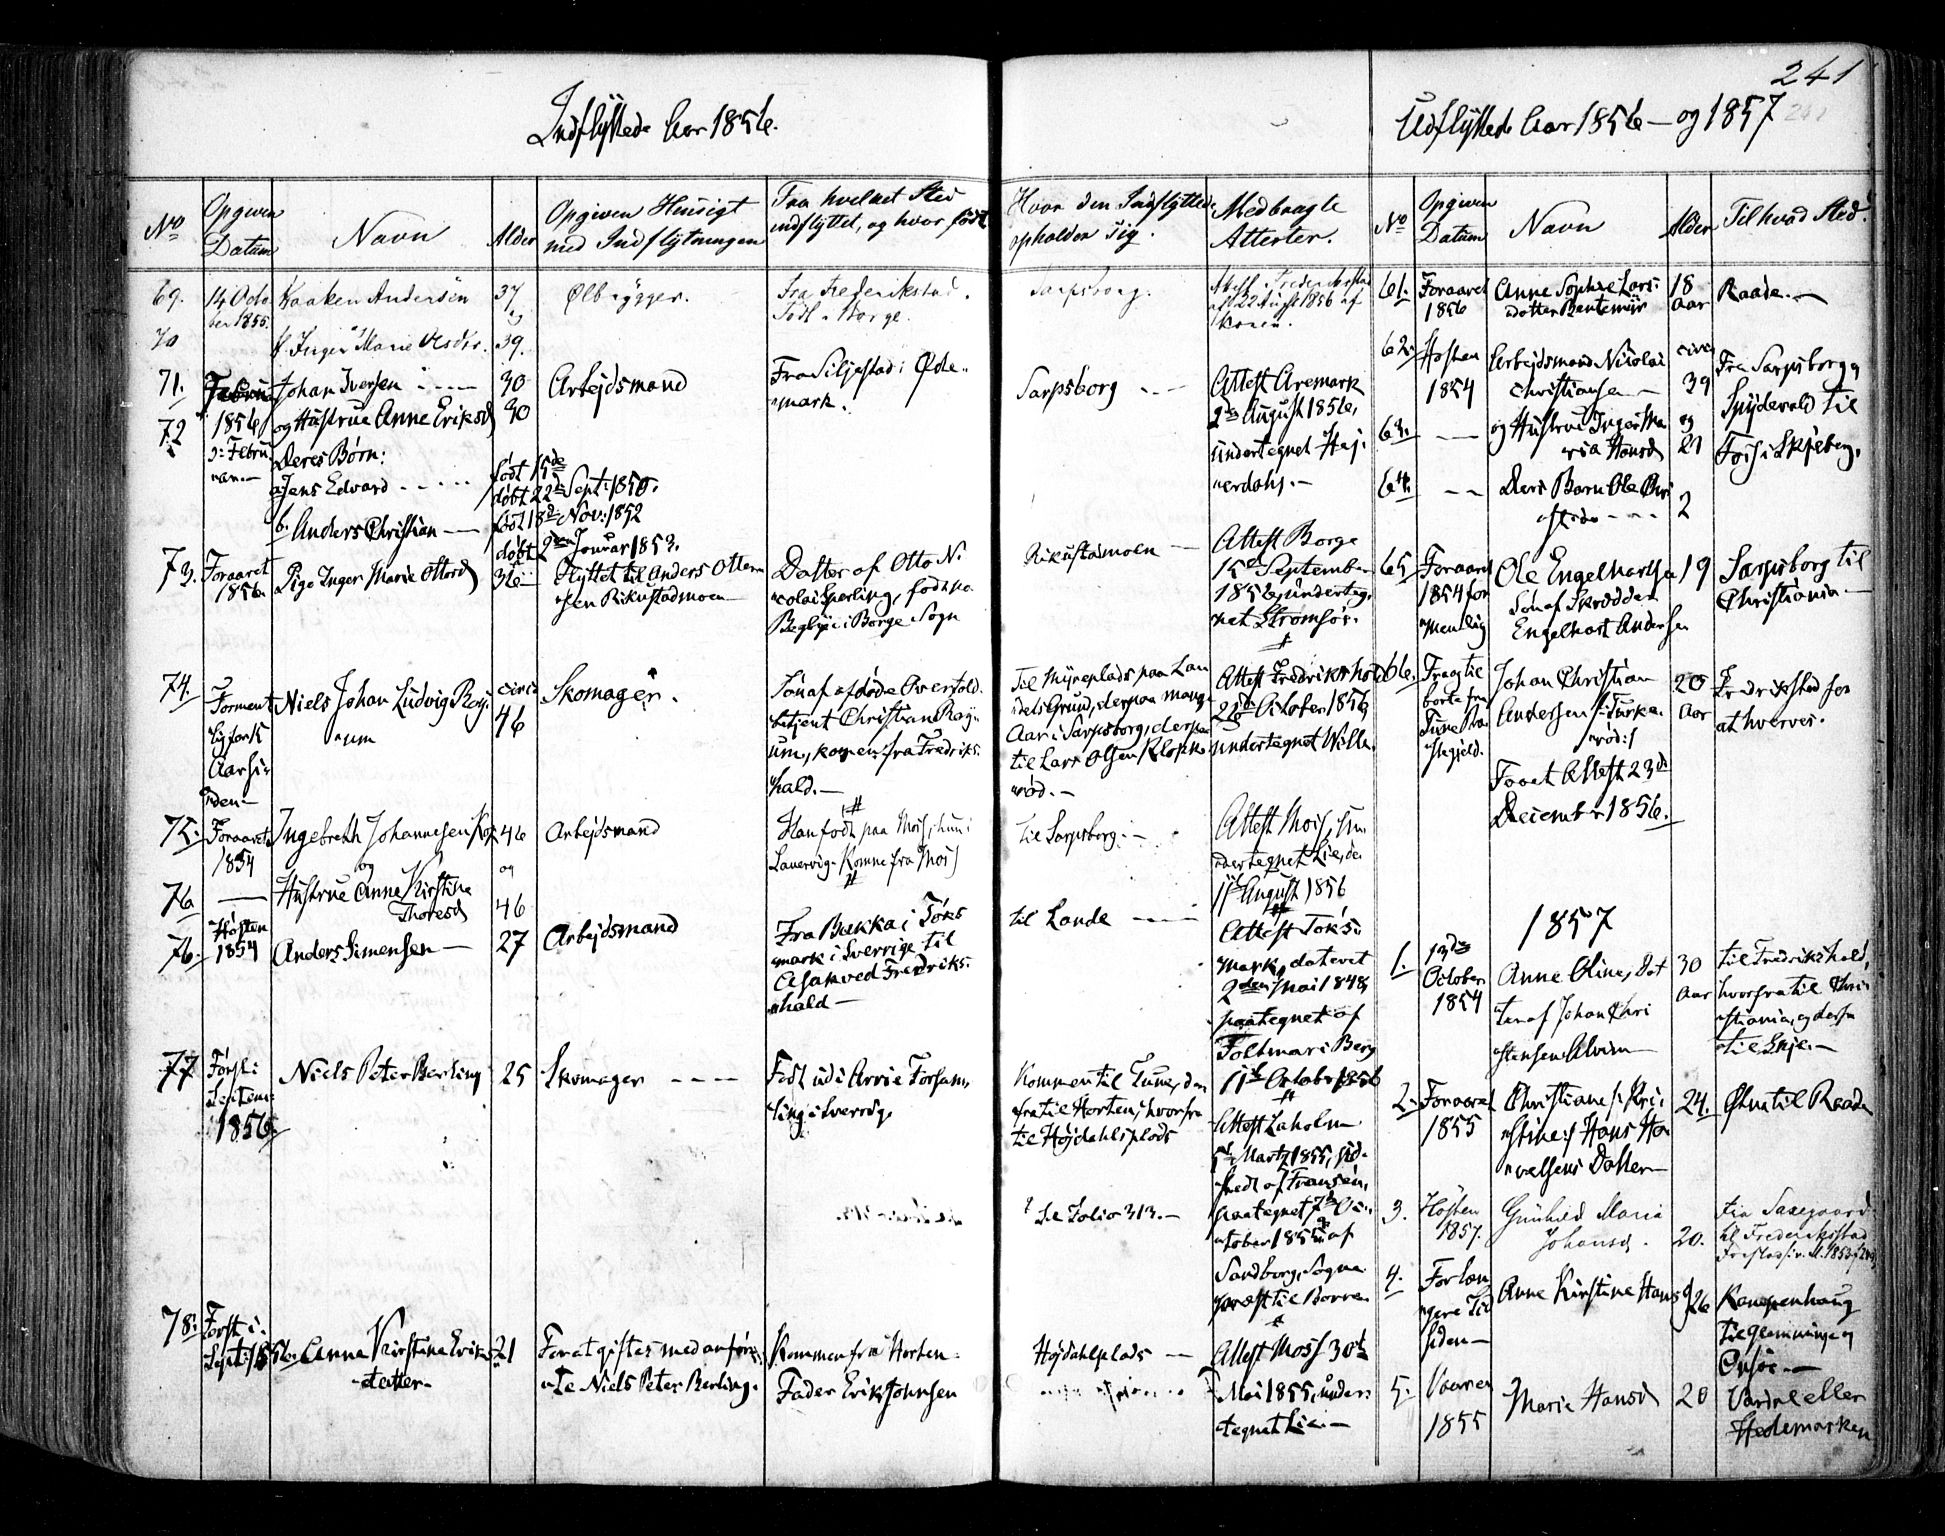 241
Indflÿttede Aar 1856.
No
Opgiven
Datum
Navn
Alder
Opgiven Hensigt
med Indflÿtningen
Fra hvilket Sted
indflÿttet, og hvor født
Hvor den Indflÿttede
opholder sig.
Medbragte
Attester.
69.
14 Octo
ber 1855.
Haaken Andersen
37
Fra Frederikstad.
Født i Borge.
Sarpsborg.
70
39.
71.
1856
Johan Iversen
30
Arbejdsmand
Fra Siljestad i Øde
mark.
Sarpsborg
Attest Aremark
2den August 1856,
undertegnet Hej
erdahl.
72
og Hustrue Anne Eriksd
30
Deres Børn:
a Jens Edvard
født 15de
døbt 22d Sept: 1850.
b. Anders Christian
født 18d Nov: 1852
døbt 2den Januar 1853.
73.
Foraaret
1856
Pige Inger Marie Ottersd
36
Flyttet til Anders Otter
sen Rikustadmoen
Datter af Otto Ni
colai Sperling, født paa
Begbÿe i Borge Sogn
Rikustadmoen
Attest Borge
15de September
1856, underteg
net Strømsøe.
74.
Forment
lig for 1/2
Aar si
den
Niels Johan Ludvig Raÿ
um
circa
46
Skomager.
Søn af afdøde Overtold
betjent Christian Raÿ
um, kommen fra Fredriks
hald.
til Mÿreplads paa Lan
dets Grund, derpaa mange
Aar i Sarpsborg, derpaa
til Lars Olsen Klokke
rød.
Attest Fredrikshald
21de October 1856
undertegnet Wille.
75.
Foraaret
1854
Ingebreth Johannesen
46
Arbejdsmand
Han født paa Moss, hun i
Laurvig. Komne fra Moss
til Sarpsborg.
Attest Moss, un
dertegnet Lie, de
11te August 1856
76
og
Hustrue Anne Kirstine
Thoresd
og
46
76.
Høsten
1854
Anders Simensen
27
Arbejdsmand
Fra Bukka i Töks
mark i Sverrige til
Asak ved Fredriks
hald
til Lande
Attest Töks
mark, dateret
2den Mai 1848,
paategnet af
Foltmar i Berg
11te October 1856
77
Først i
Septem
1856.
Niels Peter Berling
25
Skomager
Født udi Arvie Forsam
ling i Sverrig,
Kommen til Tune, der
fra til Horten, hvorfra
til Højdahlsplads
Attest Laholm
5te Martz 1855, sid
stedt af Fransen,
paategnet 7de Oc
tober 1855 af
Sandborg, Sogne
præst til Borre
Se Folio 313.
78.
Først i
Sept: 1856
Anna Kirstine Eriks
datter
21
For at giftes med anfør
te Niels Peter Berling.
Kommen fra Horten
Fader Erik Johnsen
Højdahlplads
Attest Moss 30te
Mai 1855, under
tegnet Lie.
Udflÿttede Aar 1856 — og 1857
No
Opgiven
Datum
Navn
Alder
Til hvad Sted.
61.
Foraaret
1856
Anne Sophie Lars
datter
18
aar
Raade.
62.
Høsten
1854
Arbejdsmand Nicolai
Christiansen
circa
39
Fra Sarpsborg
Spÿdevold til
Foss i Skjeberg.
63.
og Hustrue Inger Ma
ria Hansd
og
29
64.
Deres Barn Ole Chri
2
65
Foraaret
1854 for
mentlig
Ole Engelhartsen
Søn af Skrædder
Engelhart Andersen
19
Sarpsborg til
Christiania.
66.
Fragtil
borte fra
Tune Præ
stegjeld.
Johan Christian
Andersen
Faaet Attest 23de
December 1856.
20
aar
Fredrikstad for
at hverves.
1857
1.
13de
October
1854
Anne Oline, Dat
ter af Johan Chri
stensen Alvim
30
Aar
til Fredrikshald,
hvorfra til Chri
stiania, og derfra
til Skje.
2.
Foraaret
1855
Christiane /: Kri
stine :/ Hans Ha
velsens Datter
24.
til Raade
3.
Høsten
1857.
Gunhild Maria
Johansd.
20.
fra Sasegaard
til Frederiksstad
4.
For læn
gere Tid
siden
Anne Kirstine Hansd
26
Kampenhaug
til Glemminge og
Onsøe.
5.
Vaaren
1855
Marie Hansd
20
Vardal eller
Hedemarken